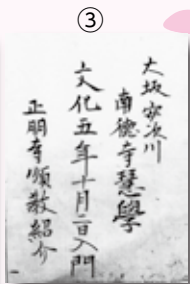 ③
大坂安次川
南德寺慧學
文化五年十月二日入門
正明寺順敎紹介